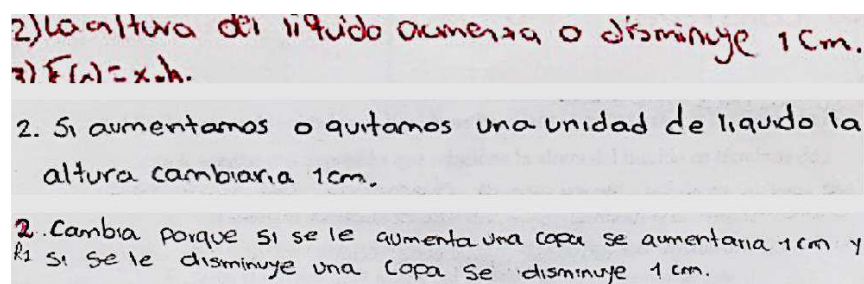 2) La altura del liquido aumenta o disminuye 1 cm.
3) F(n) = x.h.
2. Si aumentamos o quitamos una unidad de liquido la
altura cambiaria 1cm.
2. Cambia porque si se le aumenta una copa se aumentaria 1cm y
R1 si se le disminuye una copa se disminuye 1 cm.